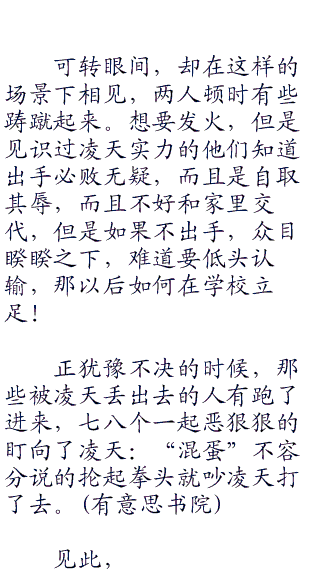 可转眼间，却在这样的
场景下相见，两人顿时有些
踌蹴起来。想要发火，但是
见识过凌天实力的他们知道
出手必败无疑，而且是自取
其辱，而且不好和家里交
代，但是如果不出手，众目
睽睽之下，难道要低头认
输，那以后如何在学校立
足！
正犹豫不决的时候，那
些被凌天丢出去的人有跑了
进来，七八个一起恶狠狠的
盯向了凌天：“混蛋”不容
分说的抡起拳头就吵凌天打
了去。（有意思书院）
见此，